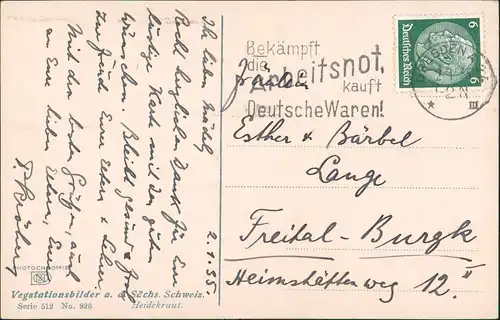 Ihr lieben Mädels
Recht herzlichen Dank für Eure
lustige Karte mit den guten
Wünschen. Bleibt gesund & froh
zur Freude Eurer Eltern & Lehrer
Mit den besten Grüßen, auch
an Eure lieben Eltern, Euer
2.1.35
Bekämpft
die
Arbeitsnot,
kauft
Deutsche Waren!
6 Deutsches Reich 6
DRESDEN
III
Fräulein
Esther & Bärbel
Lange
Freital-Burgk
Heimstättenweg 12.II
PHOTOCHROMIE
Vegetationsbilder a. d. Sächs. Schweiz.
Serie 512 No. 836 Heidekraut.